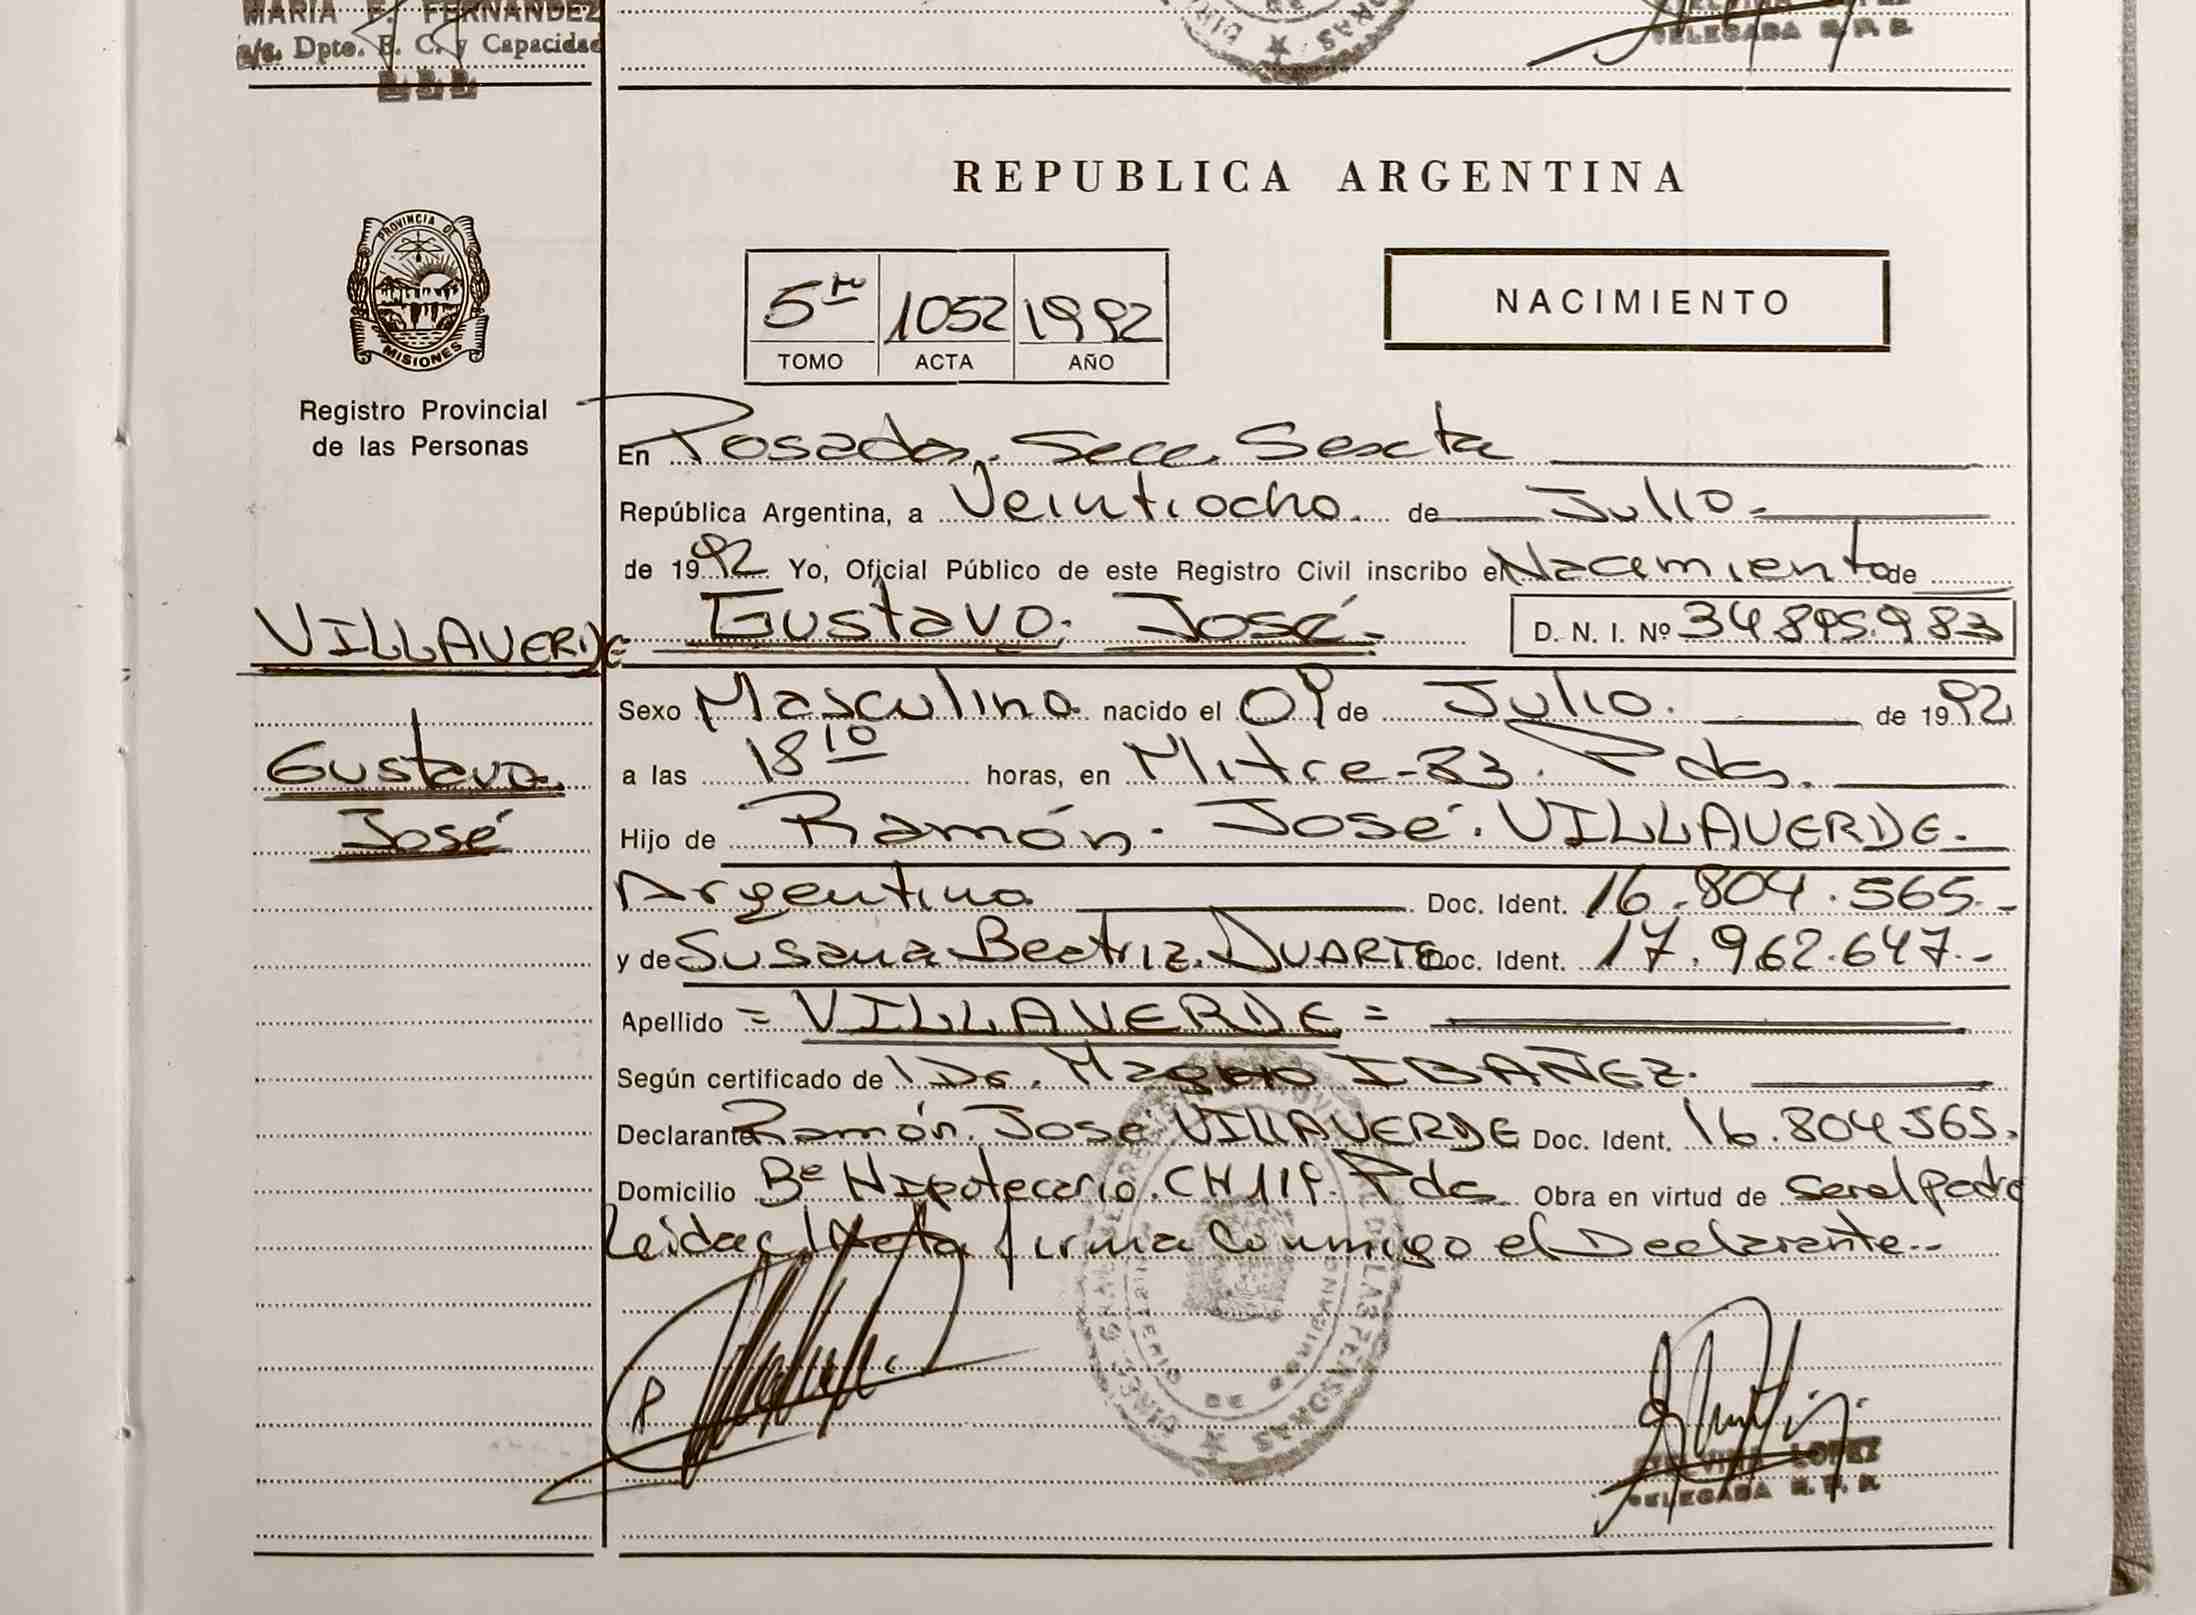 MARIA E. FERNANDEZ
a/c. Dpto. E. C. y Capacidad
R. P. P.
DELEGADA R. P. P.
REPUBLICA ARGENTINA
PROVINCIA DE
MISIONES
Registro Provincial
de las Personas
5to 1052 1992
TOMO ACTA AÑO
NACIMIENTO
En Posadas. Secc. Sexta
República Argentina, a Veintiocho. de Julio.-
de 1992 Yo, Oficial Público de este Registro Civil inscribo el Nacimiento de
VILLAVERDE
Gustavo. José.- D. N. I. Nº 34.895.983
Sexo Masculino nacido el 09 de Julio. de 1992
Gustavo.
José
a las 18 10 horas, en Mitre-83. Pdas.
Hijo de Ramón. José. VILLAVERDE.-
Argentino Doc. Ident. 16.804.565.-
y de Susana Beatriz. DUARTE Doc. Ident. 17.962.647.-
Apellido = VILLAVERDE =
Según certificado de Dr. IBAÑEZ.
Declarante Ramón. José VILLAVERDE Doc. Ident. 16.804.565.
Domicilio Bº Hipotecario. CH 119. Pdas Obra en virtud de ser el padre
Leida el Acta firma conmigo el Declarante.-
LOPEZ
DELEGADA R. P. P.